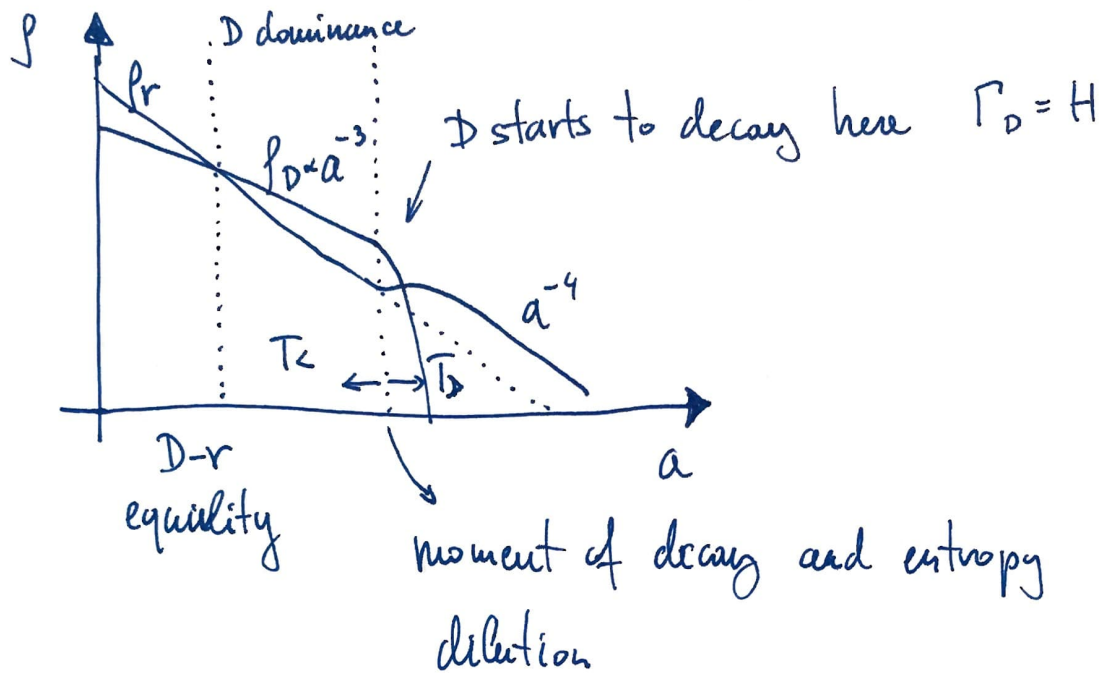 ρ
D dominance
ρr
ρD ∝ a⁻³
D starts to decay here Γ_D = H
a⁻⁴
T<
T>
D-r
equality
a
moment of decay and entropy
dilution